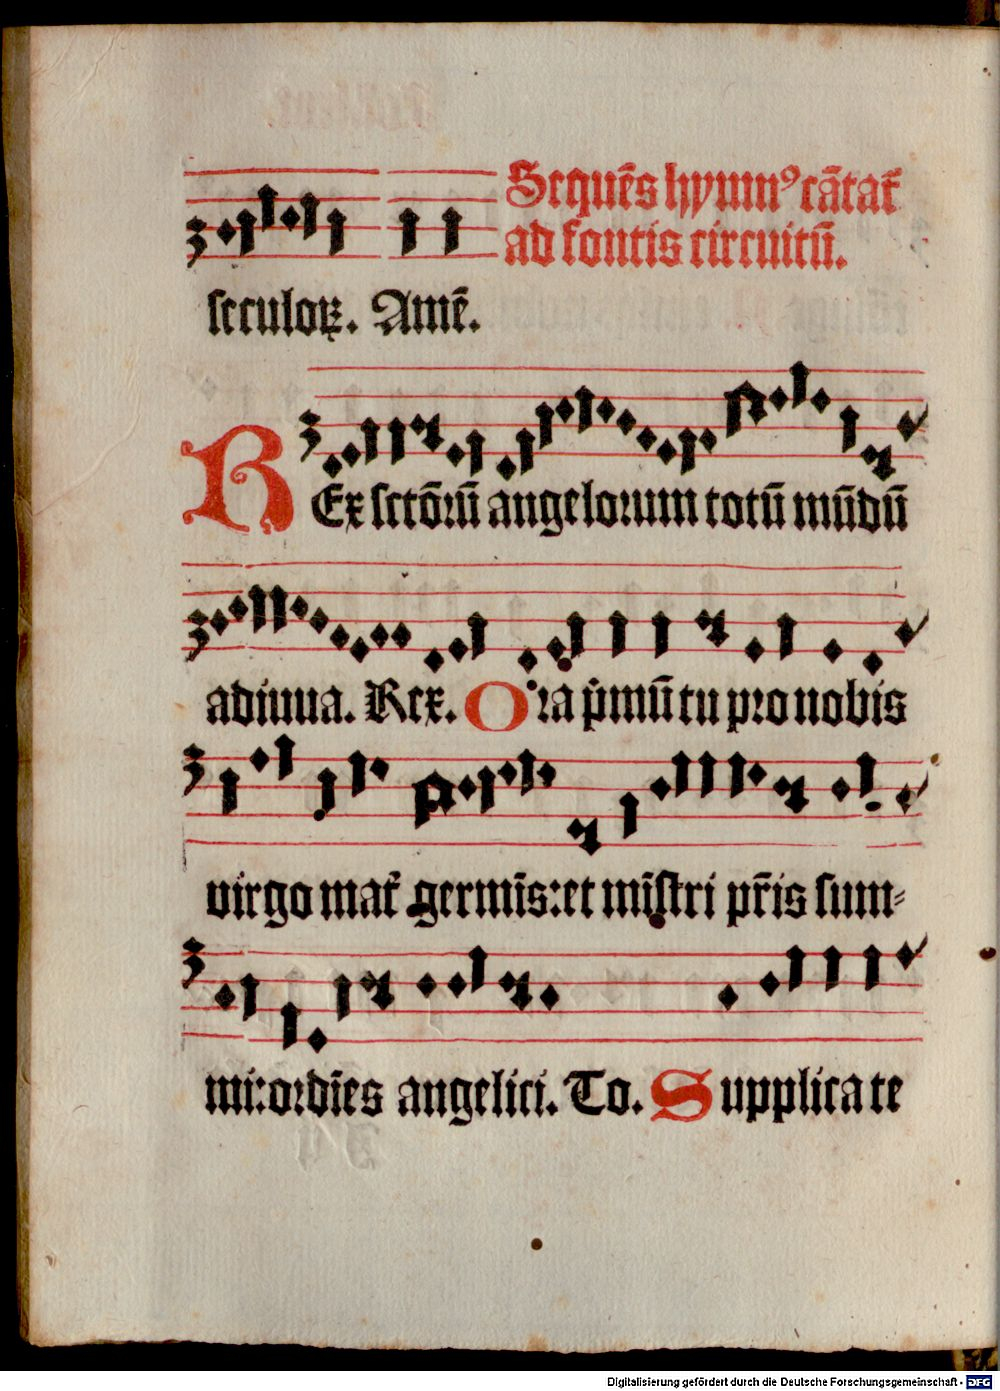 Sequēs hymnꝰ cātat᷑
ad fontis circuitū.
seculoꝝ. Amē.
REx sctōꝛū angeloꝛum totū mūdū
adiuua. Rex. Oꝛa p̄mū tu pꝛo nobis
virgo mat᷑ germīs: et mīstri pr̄is sum⸗
mi: oꝛdīes angelici. To. Supplicate
Digitalisierung gefördert durch die Deutsche Forschungsgemeinschaft - DFG